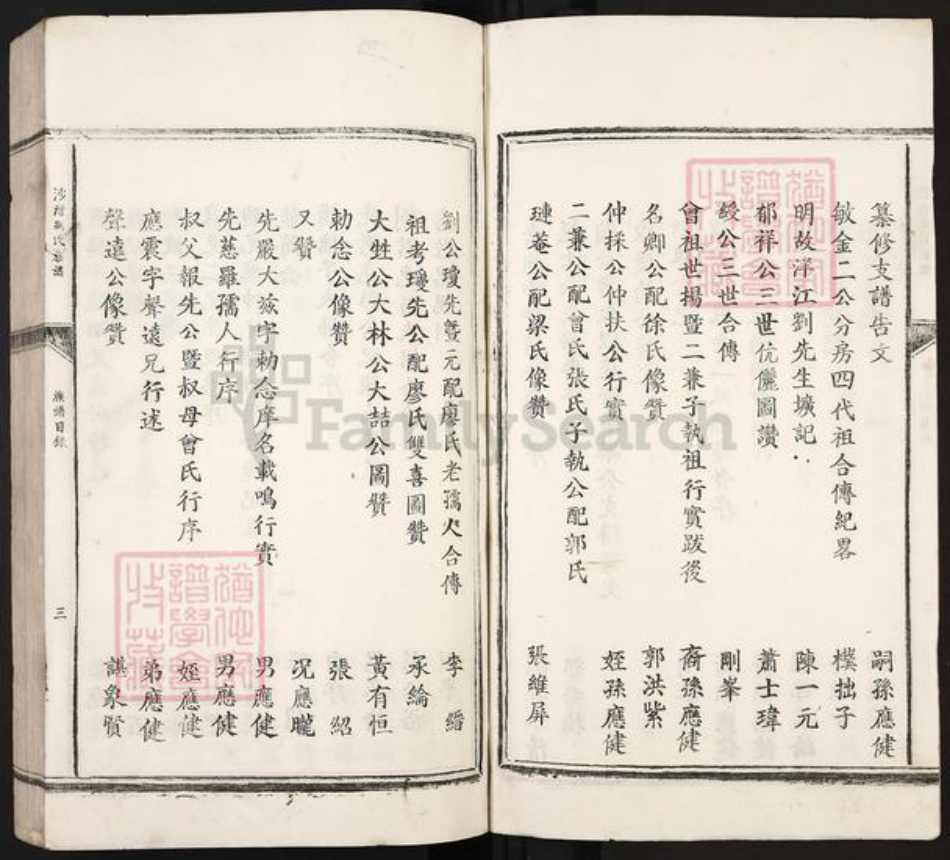 纂修支譜告文 嗣孫應健
敏金二公分房四代祖合傳紀畧 樸拙子
明故洋江劉先生壙記 陳一元
郁祥公三世伉儷圖讚 蕭士瑋
綬公三世合傳 剛峯
曾祖世揚暨二兼子執祖行實跋後 裔孫應健
名卿公配徐氏像贊 郭洪紫
仲採公仲扶公行實 姪孫應健
二兼公配曾氏張氏子執公配郭氏
璉菴公配梁氏像贊 張維屏
劉公瓊先暨元配廖氏老孺人合傳 李縉
祖考瓊先公配廖氏雙喜圖贊 承綸
大甡公大林公大喆公圖贊 黃有恒
勅念公像贊 張紹
又贊 况應曨
先嚴大㳄字勅念庠名載鳴行實 男應健
先慈羅孺人行序 男應健
叔父報先公暨叔母曾氏行序 姪應健
應震字聲遠兄行述 弟應健
聲遠公像贊 諶象賢
族譜目錄
三
猶他家譜學會收藏
猶他家譜學會收藏
FamilySearch